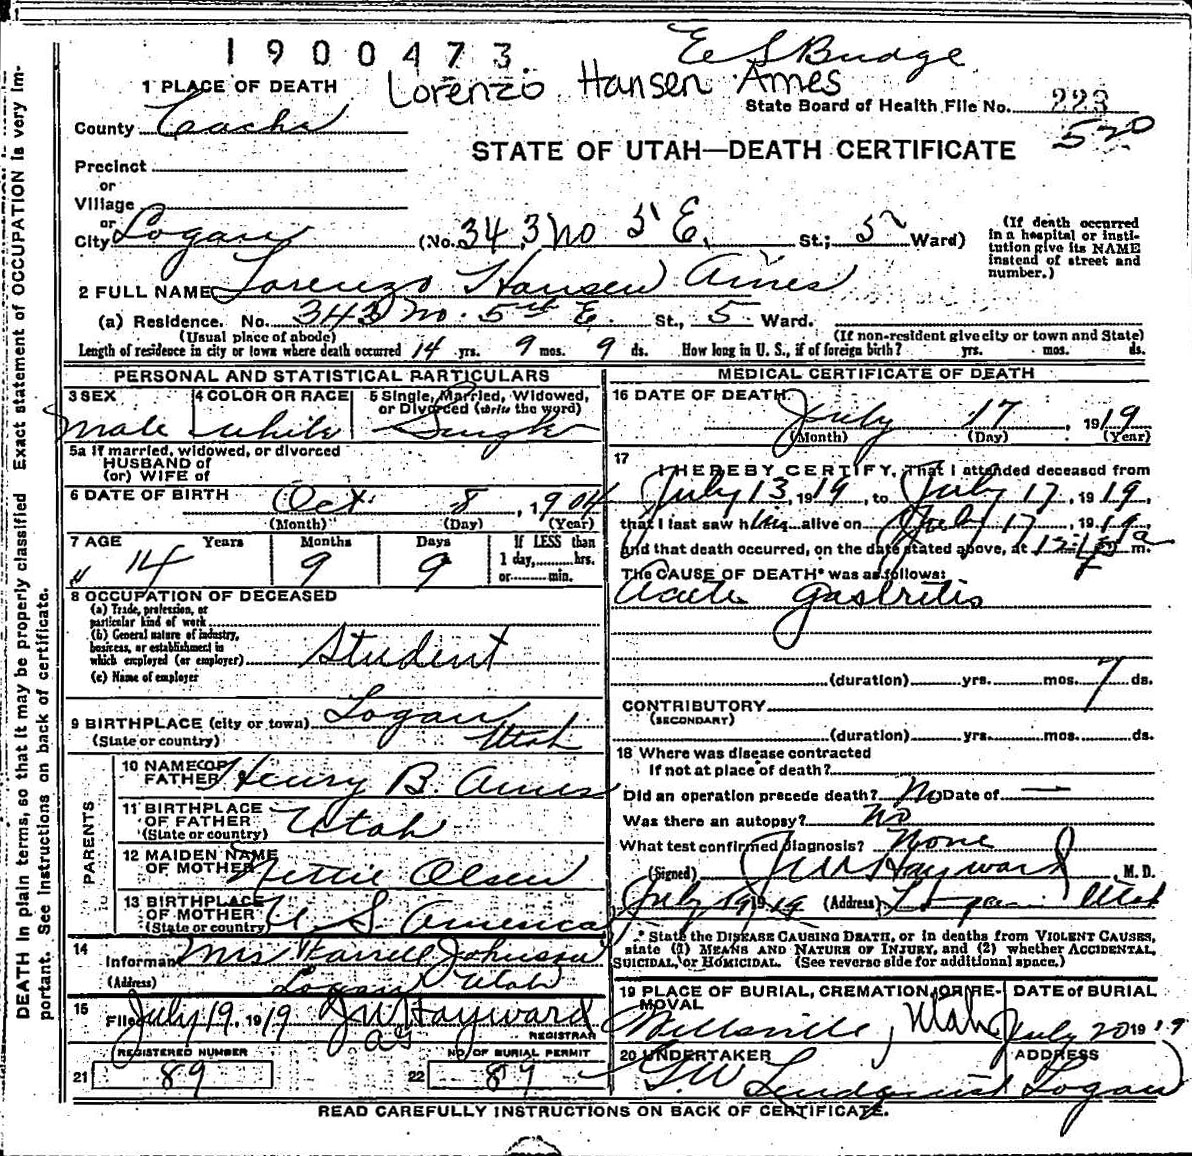 1900473.
E S Budge
Lorenzo Hansen Ames
1 PLACE OF DEATH
State Board of Health File No. 223
County Cache
520
STATE OF UTAH—DEATH CERTIFICATE
Precinct
or
Village
or
City Logan (No. 343 No 5 E. St.; 5 Ward)
(If death occurred in a hospital or institution give its NAME instead of street and number.)
2 FULL NAME Lorenzo Hansen Ames
(a) Residence. No. 343 No. 5th E. St., 5 Ward.
(Usual place of abode) (If non-resident give city or town and State)
Length of residence in city or town where death occurred 14 yrs. 9 mos. 9 ds. How long in U. S., if of foreign birth? yrs. mos. ds.
PERSONAL AND STATISTICAL PARTICULARS
3 SEX
Male
4 COLOR OR RACE
White
5 Single, Married, Widowed,
or Divorced (write the word)
Single
5a If married, widowed, or divorced
HUSBAND of
(or) WIFE of
6 DATE OF BIRTH Oct. 8, 1904
(Month) (Day) (Year)
7 AGE Years Months Days
14 9 9
If LESS than
1 day, hrs.
or min.
8 OCCUPATION OF DECEASED
(a) Trade, profession, or
particular kind of work
(b) General nature of industry,
business, or establishment in
which employed (or employer) Student
(c) Name of employer
9 BIRTHPLACE (city or town) Logan
(State or country) Utah
PARENTS
10 NAME OF
FATHER Henry B. Ames
11 BIRTHPLACE
OF FATHER Utah
(State or country)
12 MAIDEN NAME
OF MOTHER Nettie Olsen
13 BIRTHPLACE
OF MOTHER U. S. America
(State or country)
14
Informant Mrs Johnson
(Address) Logan Utah
15
Filed July 19, 1919 JW Hayward
REGISTRAR
REGISTERED NUMBER
21 89
NO. OF BURIAL PERMIT
22 89
MEDICAL CERTIFICATE OF DEATH
16 DATE OF DEATH
July 17, 1919
(Month) (Day) (Year)
17
I HEREBY CERTIFY, That I attended deceased from
July 13, 1919, to July 17, 1919,
that I last saw him alive on July 17, 1919,
and that death occurred, on the date stated above, at m.
The CAUSE OF DEATH* was as follows:
Acute gastritis
(duration) yrs. mos. 7 ds.
CONTRIBUTORY
(SECONDARY)
(duration) yrs. mos. ds.
18 Where was disease contracted
If not at place of death?
Did an operation precede death? No Date of —
Was there an autopsy? No
What test confirmed diagnosis? None
(Signed) JW Hayward M. D.
July 19 1919 (Address) Logan Utah
* State the DISEASE CAUSING DEATH, or in deaths from VIOLENT CAUSES,
state (1) MEANS AND NATURE OF INJURY, and (2) whether ACCIDENTAL,
SUICIDAL, or HOMICIDAL. (See reverse side for additional space.)
19 PLACE OF BURIAL, CREMATION, OR RE-
MOVAL
Millville, Utah
DATE of BURIAL
July 20 1919
20 UNDERTAKER
G.W Lindquist
ADDRESS
Logan
READ CAREFULLY INSTRUCTIONS ON BACK OF CERTIFICATE.
DEATH in plain terms, so that it may be properly classified Exact statement of OCCUPATION is very Im-
portant. See instructions on back of certificate.